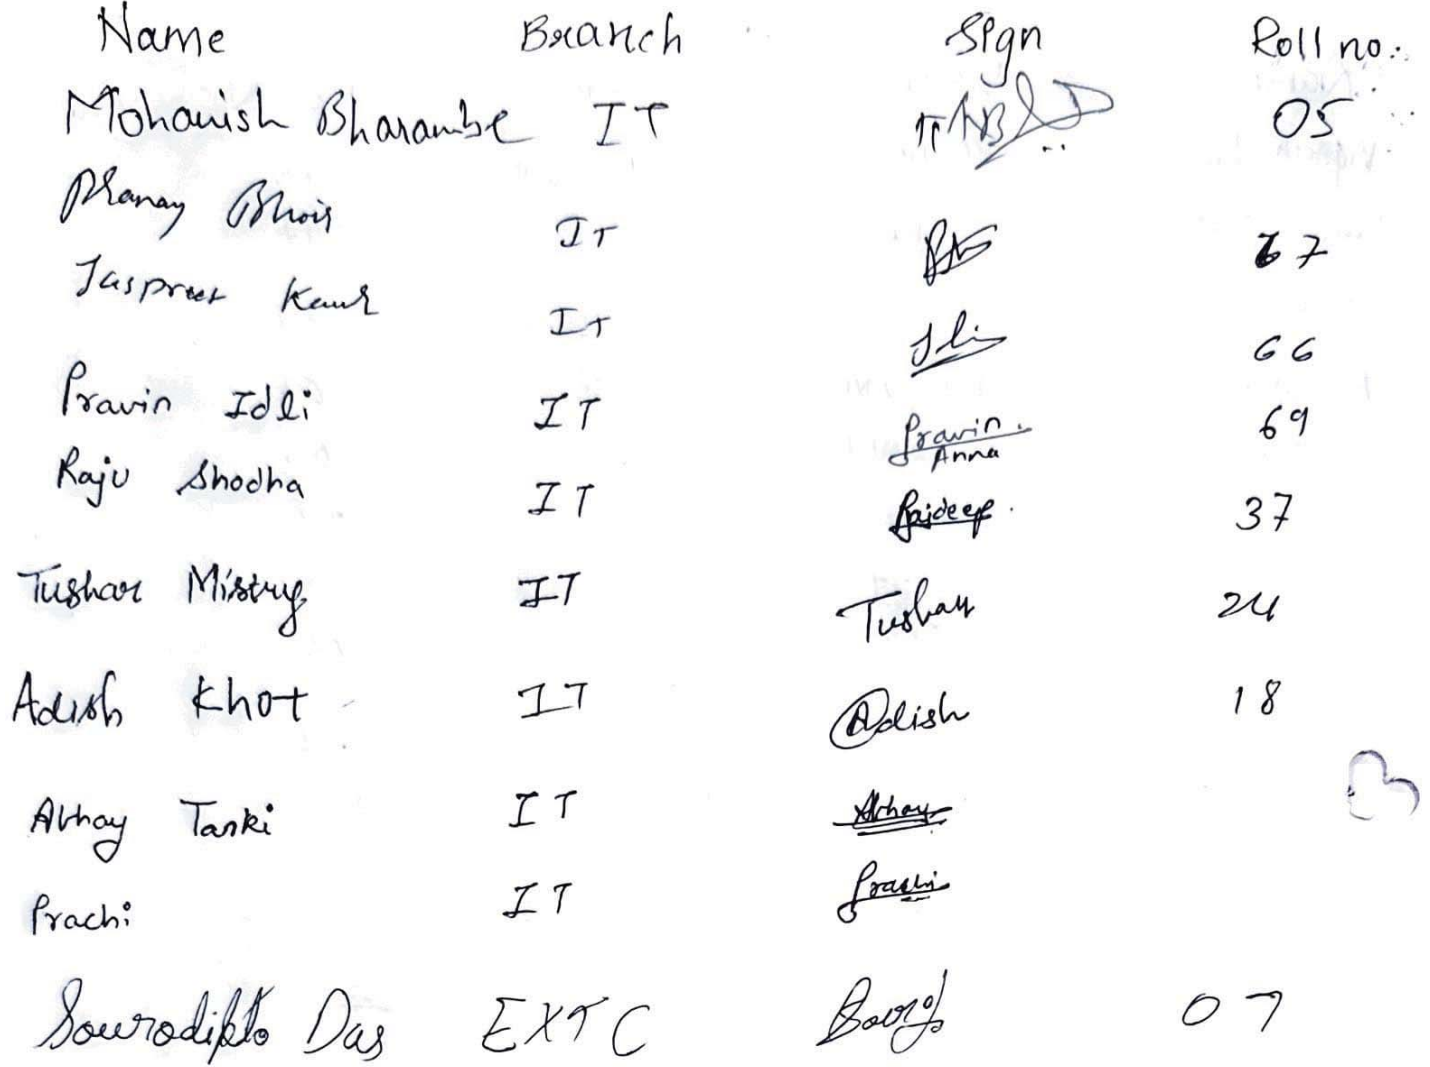 Name Branch Sign Roll no.
Mohanish Bharambe IT 05
Pranay Bhoir IT 67
Jaspreet Kaur IT 66
Pravin Idli IT Pravin Anna 69
Raju Shodha IT Rajdeep 37
Tushar Mistry IT Tushar 24
Adish Khot IT Adish 18
Abhay Tanki IT Abhay
Prachi IT Prachi
Souradipto Das EXTC 07